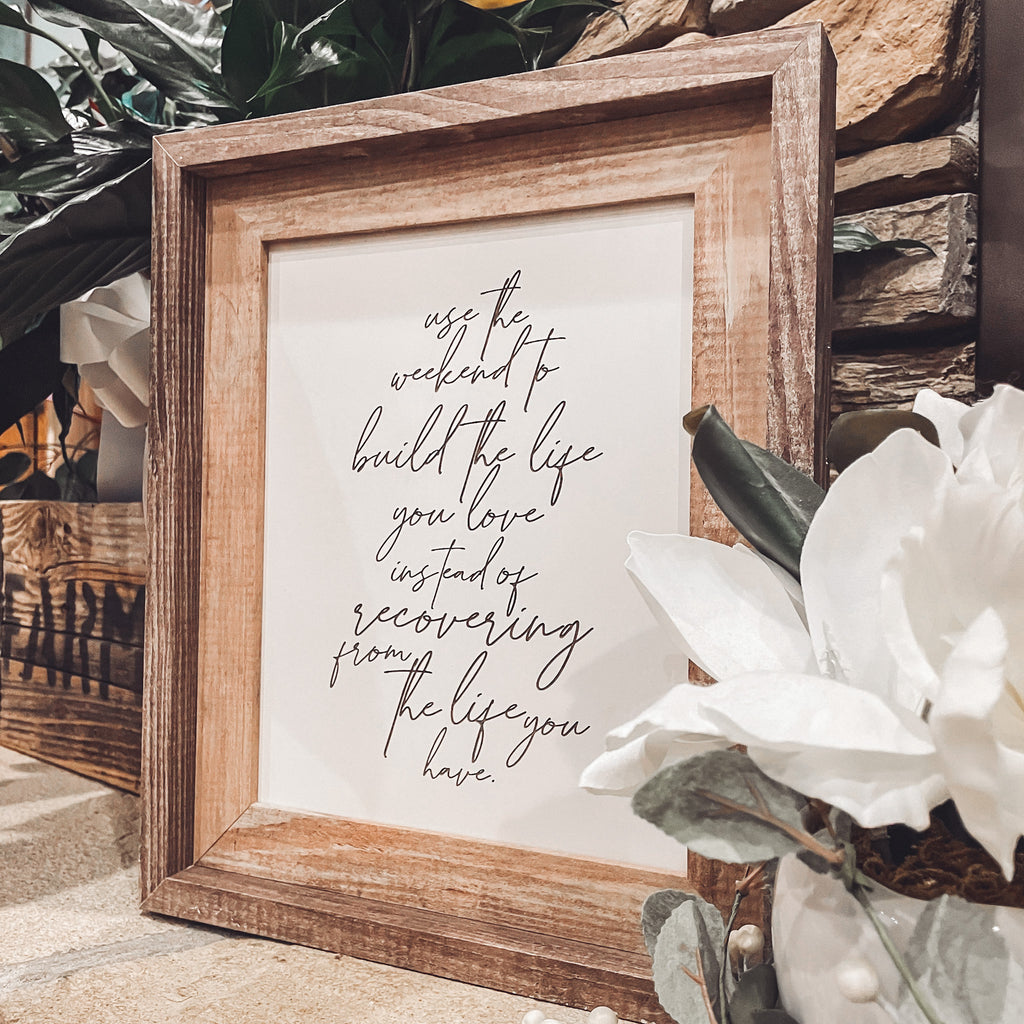 use the
weekend to
build the life
you love
instead of
recovering
from
the life you
have.